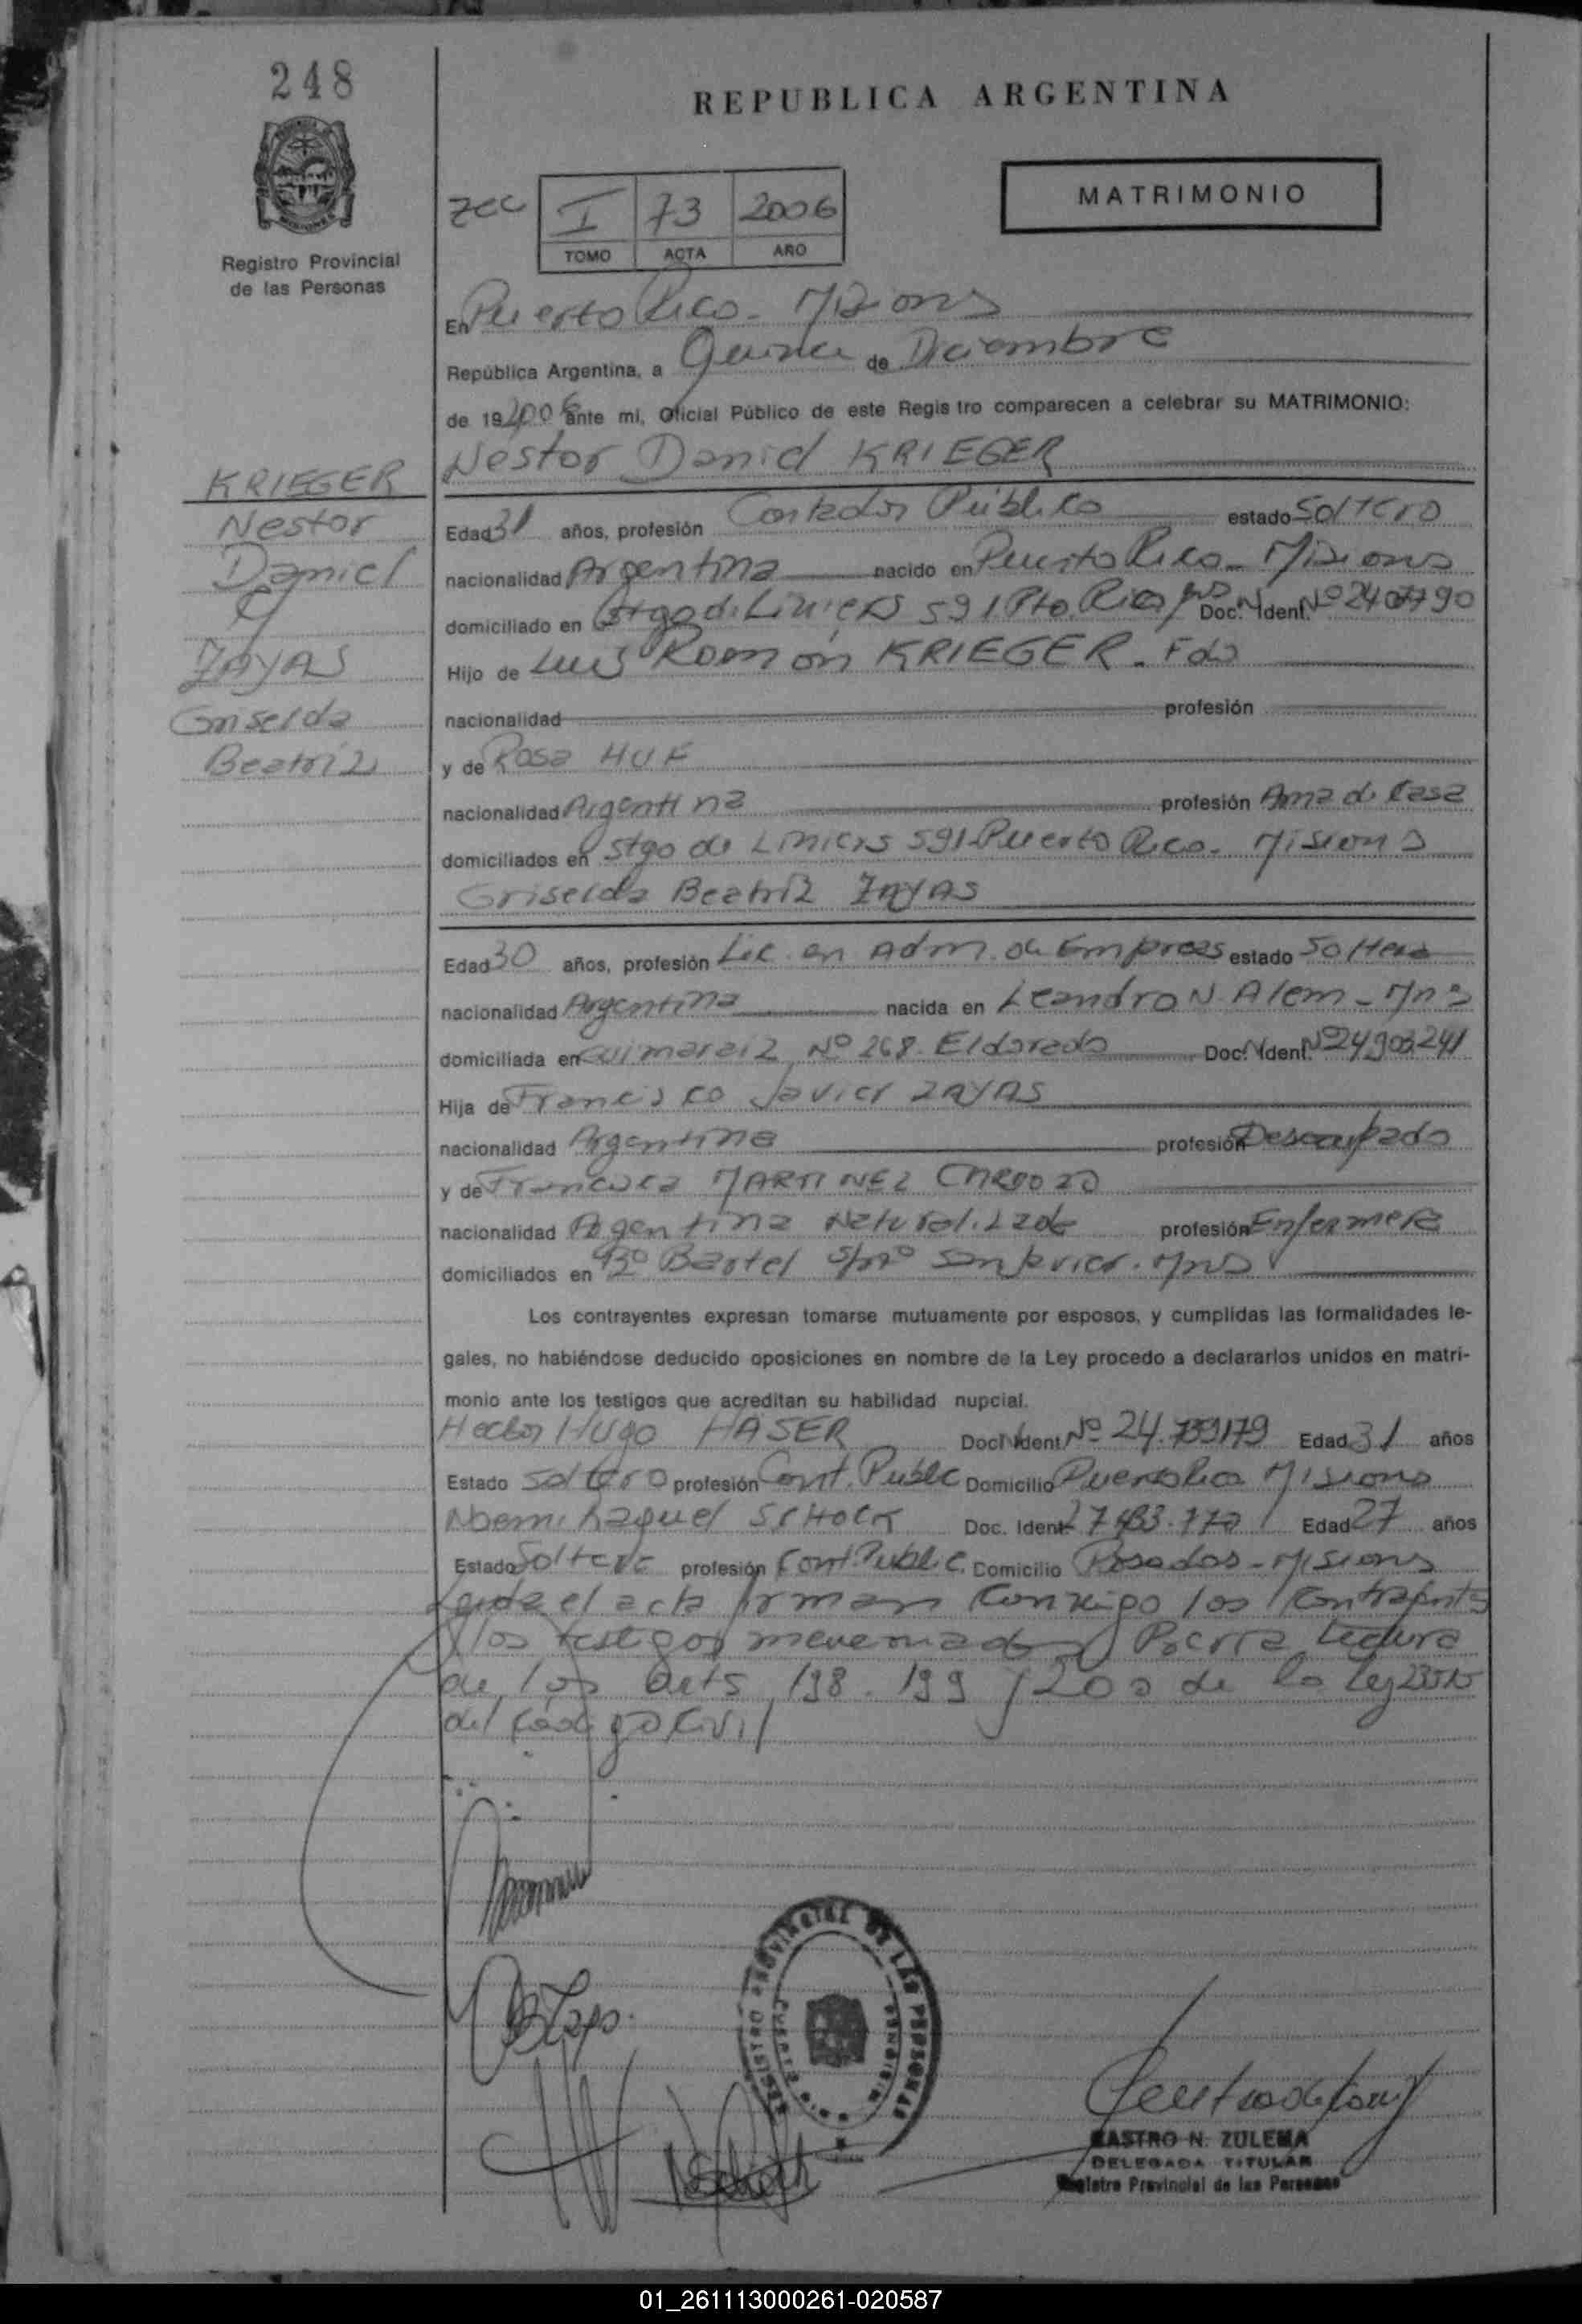 248
REPUBLICA ARGENTINA
MATRIMONIO
I 73 2006
TOMO ACTA AÑO
Registro Provincial
de las Personas
En Puerto Rico - Misiones
República Argentina, a Quince de Diciembre
de 19 2006 ante mi, Oficial Público de este Regis tro comparecen a celebrar su MATRIMONIO:
Nestor Daniel KRIEGER
KRIEGER
Nestor
Daniel
y
ZAYAS
Griselda
Beatriz
Edad 31 años, profesión Contador Público estado Soltero
nacionalidad Argentina nacido en Puerto Rico - Misiones
domiciliado en Stgo de Liniers 591 Pto. Rico Doc. N Ident. Nº
Hijo de Luis Ramón KRIEGER. Fdo
nacionalidad profesión
y de Rosa HUF
nacionalidad Argentina profesión Ama de Casa
domiciliados en Stgo de Liniers 591 Puerto Rico - Misiones
Griselda Beatriz ZAYAS
Edad 30 años, profesión Lic. en Adm. de Empresas estado Soltera
nacionalidad Argentina nacida en Leandro N. Alem - Mns
domiciliada en Guimaraiz Nº 268. Eldorado Doc. N Ident. Nº 24903241
Hija de Francisco Javier ZAYAS
nacionalidad Argentina profesión Desocupado
y de Francisca MARTINEZ CARDOZO
nacionalidad Argentina Naturalizada profesión Enfermera
domiciliados en Bº Bartel s/nº San Javier. Mns
Los contrayentes expresan tomarse mutuamente por esposos, y cumplidas las formalidades le-
gales, no habiéndose deducido oposiciones en nombre de la Ley procedo a declararlos unidos en matri-
monio ante los testigos que acreditan su habilidad nupcial.
Hector Hugo HASER Doc. N Ident. Nº 24.759179 Edad 31 años
Estado Soltero profesión Cont. Public Domicilio Puerto Rico Misiones
Noemi Raquel SCHOCK Doc. Ident. Edad 27 años
Estado Soltera profesión Cont. Public. Domicilio Posadas - Misiones
Leida el acta firman conmigo los contrayentes
y los testigos mencionados Previa Lectura
de los arts 198. 199 y 200 de la Ley
del Código Civil
REGISTRO PROVINCIAL DE LAS PERSONAS
CASTRO N. ZULEMA
DELEGADA TITULAR
Registro Provincial de las Personas
01_261113000261-020587